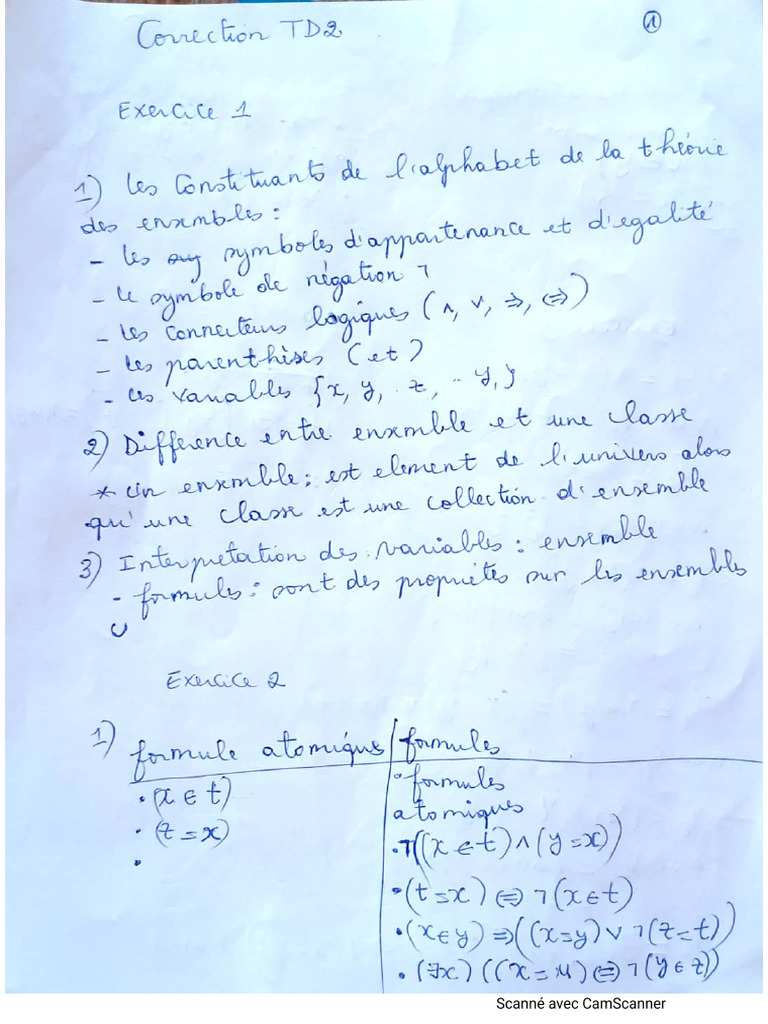 Correction TD2
①
Exercice 1
1) Les Constituants de l'alphabet de la théorie
des ensembles :
- les symboles d'appartenance et d'egalité
- le symbole de négation ¬
- les connecteurs logiques (∧, ∨, ⇒, ⇔)
- les parenthèses ( et )
- les variables {x, y, z, .. y, }
2) Difference entre ensemble et une classe
* Un ensemble : est element de l'univers alors
qu'une classe est une collection d'ensemble
3) Interpretation des variables : ensemble
- formules : sont des propriétes sur les ensembles
Exercice 2
1) formule atomique | formules
• formules
• (x ∈ t)
atomiques
• (z = x)
• ¬((x ∈ t) ∧ (y = x))
• (t = x) ⇔ ¬(x ∈ t)
• (x ∈ y) ⇒ ((x = y) ∨ ¬(z = t))
• (∃x) ((x = u) ⇔ ¬(y ∈ z))
Scanné avec CamScanner